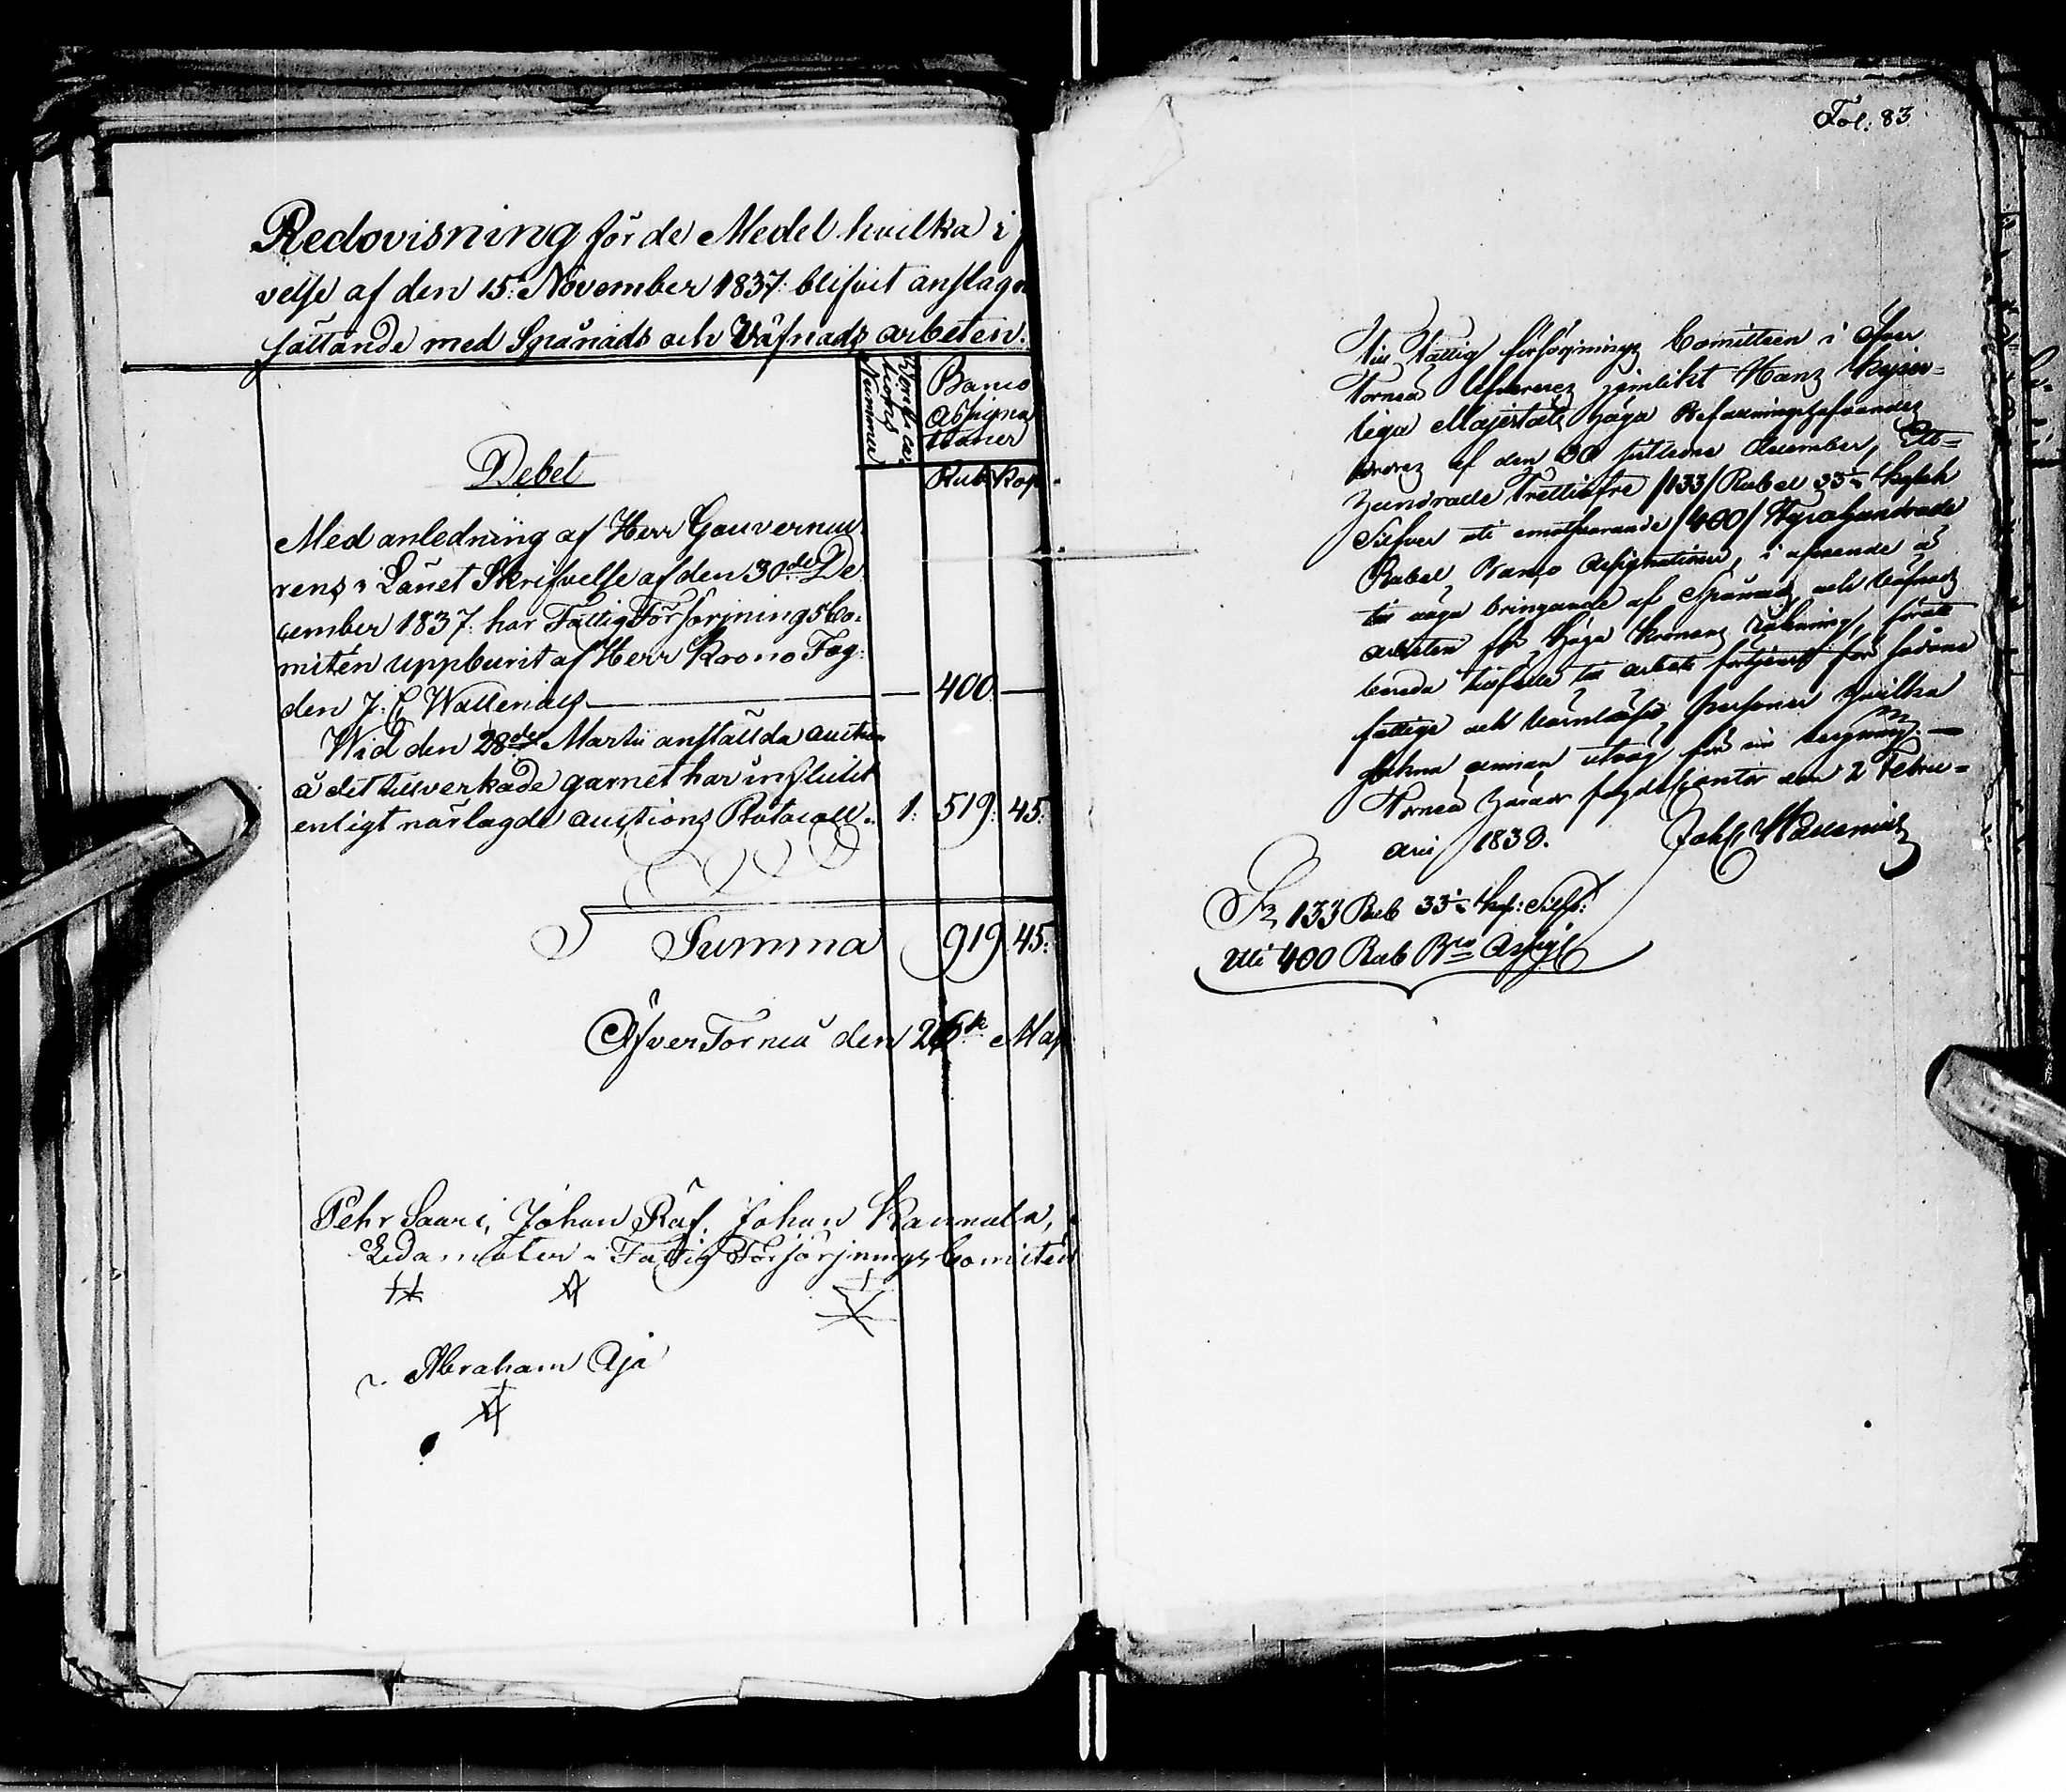 Redovisning för de Medel hvilka i
velse af den 15. November 1837 blifvit anslagn
sättande med Spånads och Väfnads arbeten.
Verifica
tions
Nummer
Banco
Assigna
tioner
Debet
Rub Kop
Med anledning af Herr Gouverneu
rens i Länet Skrifvelse af den 30de De
cember 1837 har Fattig Försörjnings Co-
miten uppburit af Herr Krono Fog
den J. E. Wallenius — 400 —
Wid den 28de Martii anställda auction
å det tillverkade garnet har influtit
enligt närlagde auctions Protocoll. 1. 519. 45.
Summa 919. 45.
ÖfverTorneå den Maj
Pehr Saari, Johan Räf. Johan Kannala,
Ledamöter i Fattig Försörjnings Comiten
Abraham Äjä
Fol. 83.
Till Fattig försörjnings Comitteen i Öfver
Torneå lefvereras jemlikt Hans Kejser-
liga Majestäts höga Befallningshafvandes
ordres af den 30 sistledne December, Ett-
hundrade Trettiotre /133/ Rubel 33⅓ Kopek
Silfver eller emotsvarande /400/ Fyrahundrade
Rubel Banco Assignationer, i afseende å
till väga bringande af Spånads och Väfnads
arbeten för höga Kronans räkning, för att
bereda tillfälle till arbets förtjenst för sådane
fattige och värnlöse personer hvilka
sakna annan utväg för sin bergning. —
Torneå härads fogdekontor den 2 Febru-
arii 1838. Joh E Wallenius
133 Rub 33⅓ Kop: Silf:
eller 400 Rub Bco Assigt